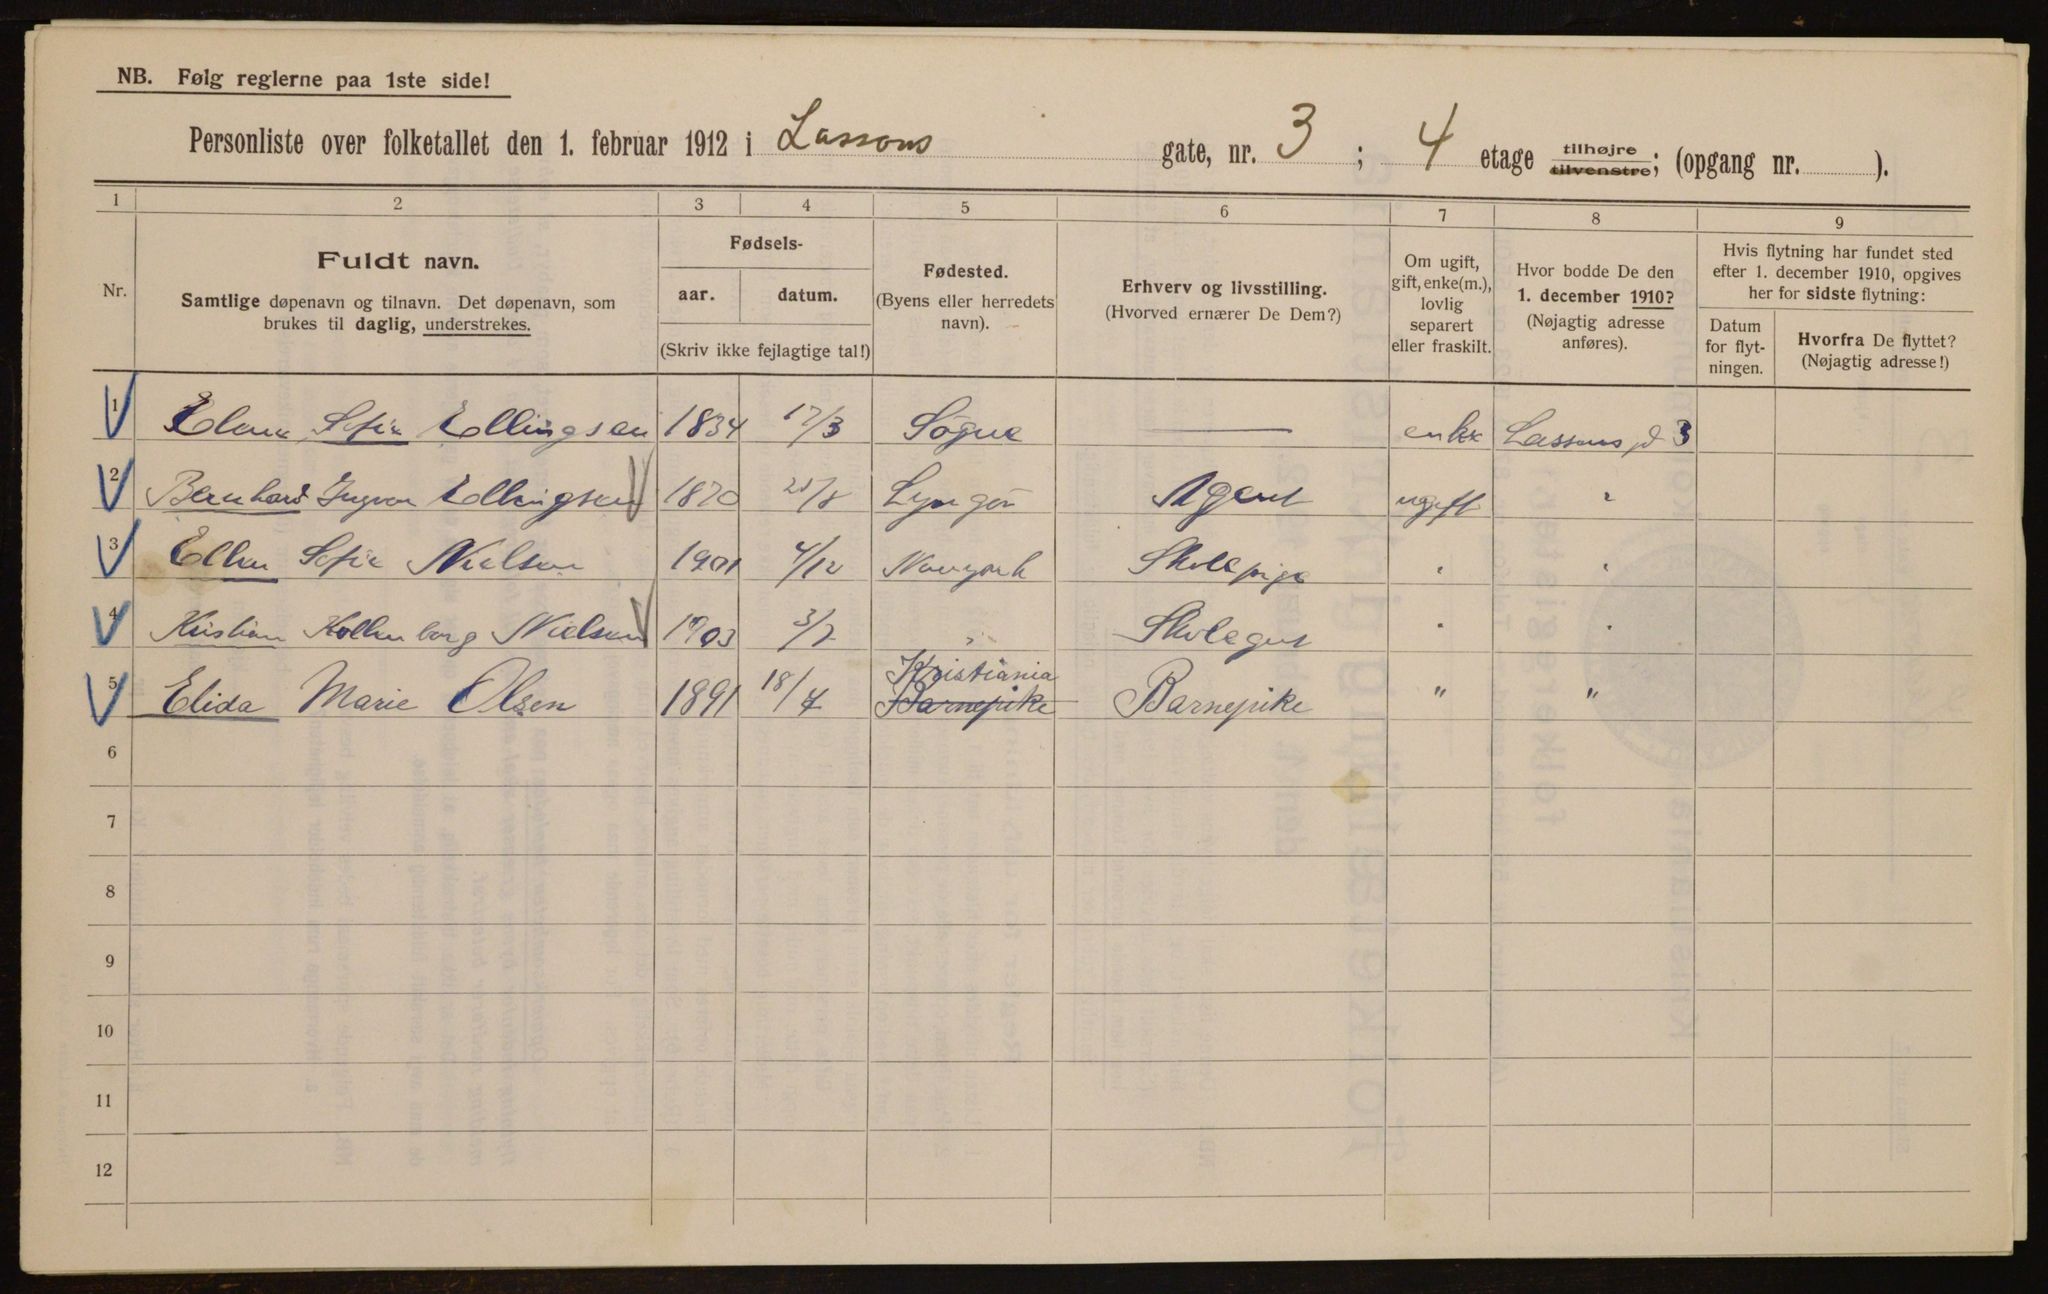 NB. Følg reglerne paa 1ste side!
Personliste over folketallet den 1. februar 1912 i Lassons gate, nr. 3 ; 4 etage tilhøjre tilvenstre; (opgang nr. ).
1 2 3 4 5 6 7 8 9
Nr.
Fuldt navn.
Samtlige døpenavn og tilnavn. Det døpenavn, som
brukes til daglig, understrekes.
Fødsels-
aar. datum.
(Skriv ikke fejlagtige tal!)
Fødested.
(Byens eller herredets
navn).
Erhverv og livsstilling.
(Hvorved ernærer De Dem?)
Om ugift,
gift, enke(m.),
lovlig
separert
eller fraskilt.
Hvor bodde De den
1. december 1910?
(Nøjagtig adresse
anføres).
Hvis flytning har fundet sted
efter 1. december 1910, opgives
her for sidste flytning:
Datum
for flyt-
ningen.
Hvorfra De flyttet?
(Nøjagtig adresse!)
1 Sofie Ellingsen 1834 17/3 Sögne — enke Lassons g 3
2 Bernhard Ingvar Ellingsen 1870 /8 Lyngör Agent ugift "
3 Ellen Sofie Nielsen 1901 4/12 Newyork Skolepige " "
4 Kristian Nielsen 1903 3/7 " Skolegut " "
Kristiania
5 Elida Marie Olsen 1891 18/4 Barnepike Barnepike " "
6
7
8
9
10
11
12